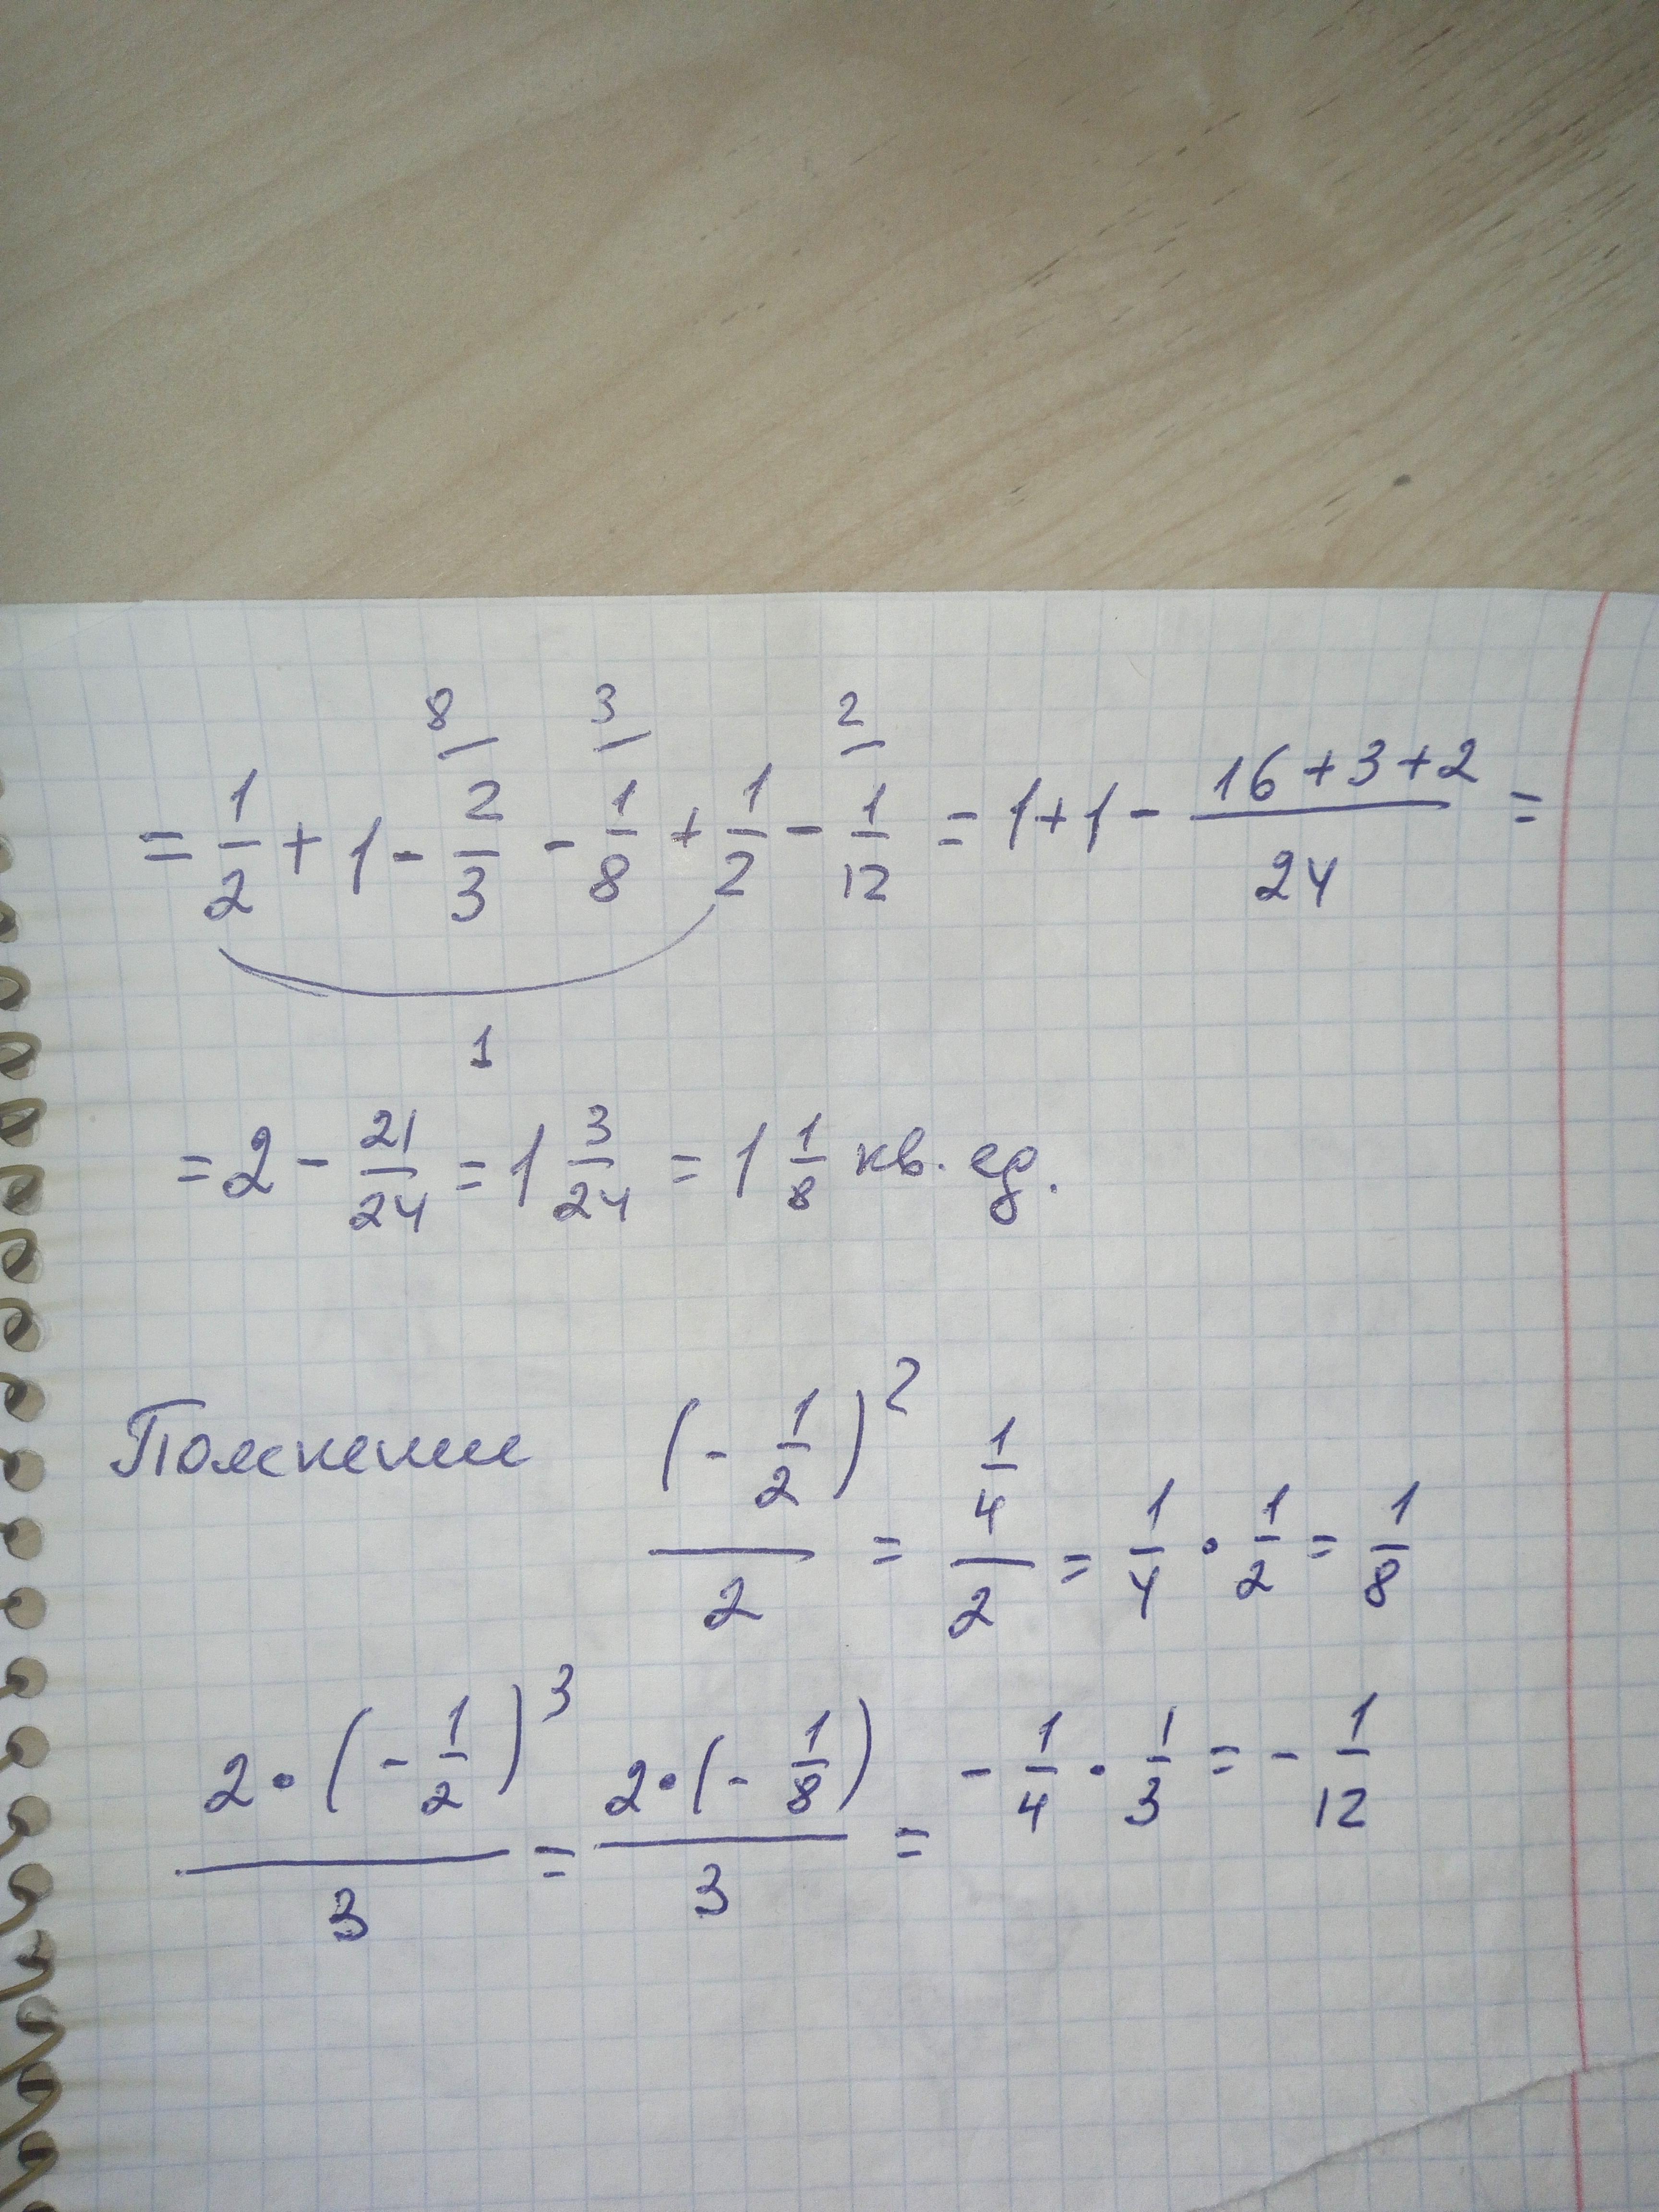 8 3 2
= 1/2 + 1 - 2/3 - 1/8 + 1/2 - 1/12 = 1+1 - (16+3+2)/24 =
1
= 2 - 21/24 = 1 3/24 = 1 1/8 кв. ед.
Пояснение (-1/2)^2/2 = 1/4/2 = 1/4 · 1/2 = 1/8
2·(-1/2)^3/3 = 2·(-1/8)/3 = -1/4 · 1/3 = -1/12